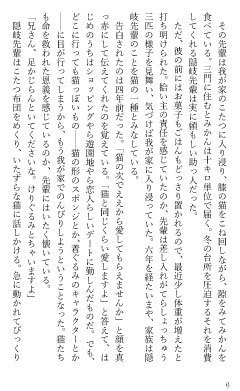 その先輩は我が家のこたつに入り浸り、膝の猫をこね回しながら、隙をみてみかんを
食べている。二門に住むとみかんは十キロ単位で届く、冬の台所を圧迫するそれを消費
してくれる隠岐先輩は実に頼もしい助っ人だった。
ただ、彼の前にはお菓子もごはんもどっさり置かれるので、最近少し体重が増えたと
打ち明けられた。拾い主の責任を感じていたのか、先輩は差し入れがてらしょっちゅう
三匹の様子を見舞い、気づけば我が家に入り浸っていた。六年を経たいまや、家族は隠
岐先輩のことを猫の一種とみなしている。
告白されたのは四年前だった。「猫の次でええから愛してもらえませんか」と顔を真
っ赤にして伝えてくれたのを覚えている。「猫と同じくらい愛しますよ」と答えて、は
じめのうちはショッピングやら遊園地やら恋人らしいデートに勤しんだものだ。でも、
どこに行っても猫っぽいもの――猫の形のスポンジとか、着ぐるみのキャラクターとか
――に目が行ってしまうから、もう我が家でのんびりしようということになった。猫たち
も命を救われた恩義を感じているのか、先輩にはいたく懐いている。
「兄さん、足かじらんといてくださいな。けりぐるみとちゃいますよ」
隠岐先輩はこたつ布団をめくり、いたずらな猫に話しかける。急に動かれてびっくり
6